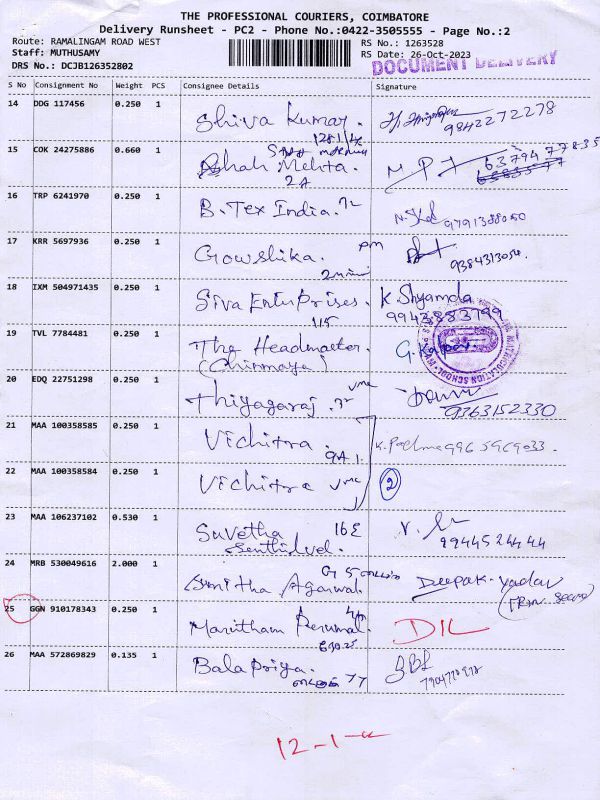 THE PROFESSIONAL COURIERS, COIMBATORE
Delivery Runsheet - PC2 - Phone No.:0422-3505555 - Page No.:2
Route: RAMALINGAM ROAD WEST
Staff: MUTHUSAMY
DRS No.: DCJB126352802
RS No.: 1263528
RS Date: 26-Oct-2023
DOCUMENT DELIVERY
S No Consignment No Weight PCS Consignee Details Signature
14 DDG 117456 0.250 1 Shiva Kumar. 9842272278
15 COK 24275886 0.660 1 Shah Mehta. 2A M P 63794 77835
16 TRP 6241970 0.250 1 B. Tex India.
17 KRR 5697936 0.250 1 Gowshika. pm 9384313054.
18 IXM 504971435 0.250 1 Siva Enterprises. 115 K. Shyamala 9943883799
19 TVL 7784481 0.250 1 The Headmaster. (Chinmaya)
MATRICULATION SCHOOL
20 EDQ 22751298 0.250 1 Thiyagaraj. 9363152330
21 MAA 100358585 0.250 1 Vichitra. 9A1. K. Padma
22 MAA 100358584 0.250 1 Vichitra 2
23 MAA 106237102 0.530 1 Suvetha Senthilvel. 16E 9944524444
24 MRB 530049616 2.000 1 Smitha Agarwal. Deepak. Yadav
25 GGN 910178343 0.250 1 Marutham Perumal. DIL
26 MAA 572869829 0.135 1 Bala Priya. 77
12-1-